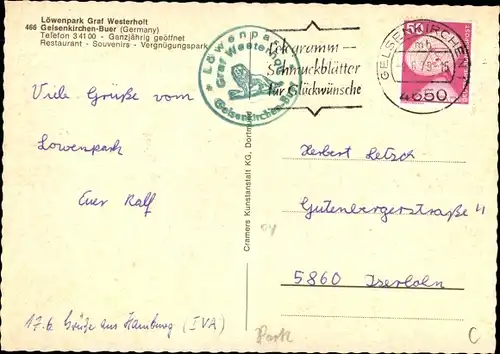 Löwenpark Graf Westerholt
466 Gelsenkirchen-Buer (Germany)
Telefon 34100 - Ganzjährig geöffnet
Restaurant - Souvenirs - Vergnügungspark
Löwenpark
Graf Westerholt
Gelsenkirchen-Buer
Telegramm-
Schmuckblätter
für Glückwünsche
GELSENKIRCHEN
4650
50
Viele Grüße vom
Löwenpark
Euer Ralf
17.6. Grüße aus Hamburg (IVA)
Cramers Kunstanstalt KG, Dortmund
Herbert Letsch
Gutenbergerstraße 11
5860 Iserlohn
Park
C